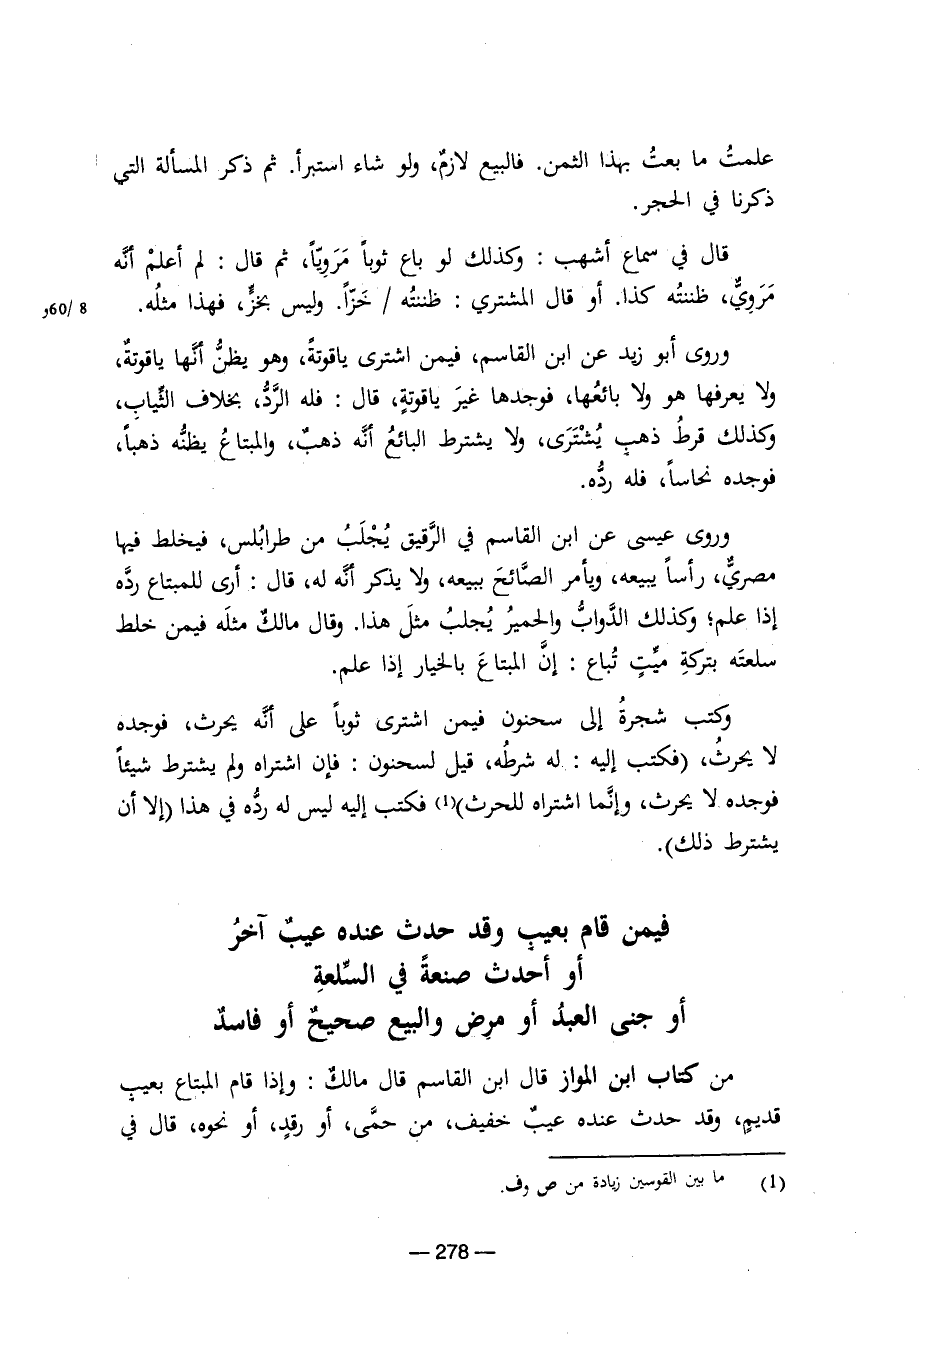 علمتُ ما بعتُ بهذا الثمن. فالبيع لازمٌ، ولو شاء استبرأ. ثم ذكر المسألة التي
ذكرنا في الحجر.
قال في سماع أشهب : وكذلك لو باع ثوباً مَرَوِيّاً، ثم قال : لم أعلمْ أنَّه
مَرَوِيٌّ، ظننتُه كذا. أو قال المشتري : ظننتُه / خَزّاً. وليس بخزٍّ، فهذا مثلُه.
8 /60و
وروى أبو زيد عن ابن القاسم، فيمن اشترى ياقوتةً، وهو يظنُّ أنَّها ياقوتةٌ،
ولا يعرفها هو ولا بائعُها، فوجدها غيرَ ياقوتةٍ، قال : فله الرَّدُّ، بخلاف الثِّيابِ،
وكذلك قرطُ ذهبٍ يُشْتَرَى، ولا يشترط البائعُ أنَّه ذهبٌ، والمبتاعُ يظنُّه ذهباً،
فوجده نحاساً، فله ردُّه.
وروى عيسى عن ابن القاسم في الرَّقيق يُجْلَبُ من طرابُلس، فيخلط فيها
مصريٌّ، رأساً يبيعه، ويأمر الصَّائحَ ببيعه، ولا يذكر أنَّه له، قال : أرى للمبتاع ردَّه
إذا علم؛ وكذلك الدَّوابُّ والحميرُ يُجلبُ مثلَ هذا. وقال مالكٌ مثلَه فيمن خلط
سلعتَه بتركةِ ميِّتٍ تُباع : إنَّ المبتاعَ بالخيار إذا علم.
وكتب شجرةُ إلى سحنون فيمن اشترى ثوباً على أنَّه يحرث، فوجده
لا يحرثُ، (فكتب إليه : له شرطُه، قيل لسحنون : فإن اشتراه ولم يشترط شيئاً
فوجده لا يحرث، وإنَّما اشتراه للحرث)(1) فكتب إليه ليس له ردُّه في هذا (إلا أن
يشترط ذلك).
فيمن قام بعيبٍ وقد حدث عنده عيبٌ آخرُ
أو أحدث صنعةً في السِّلعةِ
أو جنى العبدُ أو مرِض والبيع صحيحٌ أو فاسدٌ
من كتاب ابن المواز قال ابن القاسم قال مالكٌ : وإذا قام المبتاع بعيبٍ
قديمٍ، وقد حدث عنده عيبٌ خفيف، من حمَّى، أو رقدٍ، أو نحوه، قال في
(1) ما بين القوسين زيادة من ص وف.
— 278 —